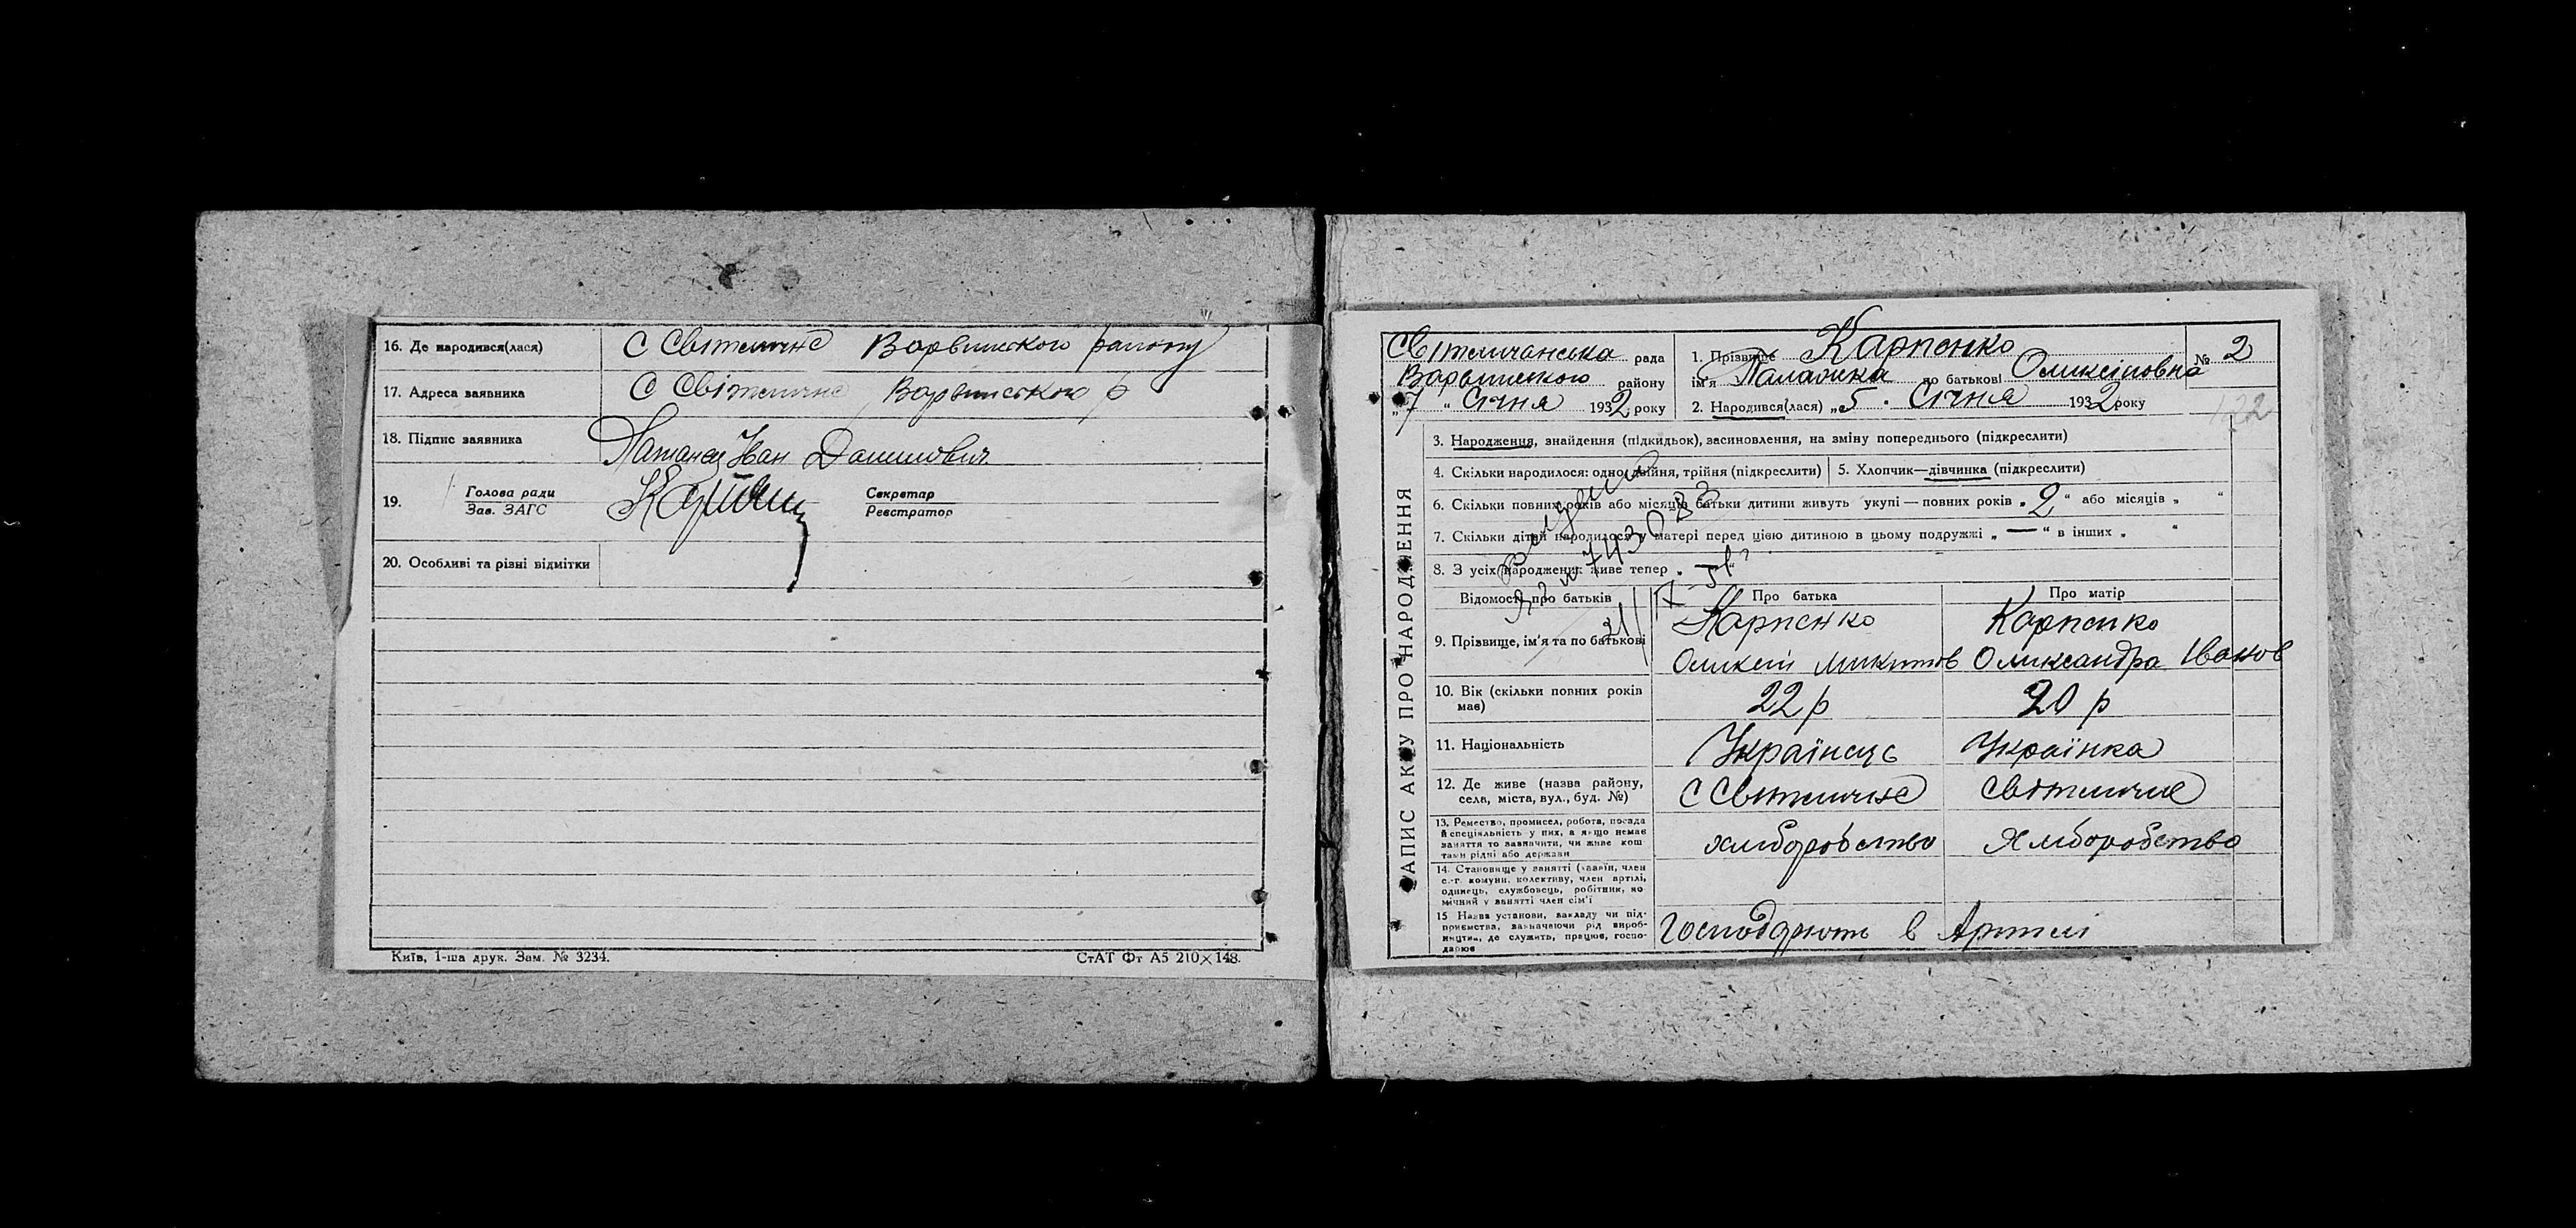 16. Де народився(лася) С Світличне Варвинского району
17. Адреса заявника С Світличне Варвинського р
18. Підпис заявника Іван Данилович
19. Голова ради
Зав. ЗАГС
Секретар
Реєстратор
20. Особливі та різні відмітки
Київ, 1-ша друк. Зам. № 3234.
СтАТ Фт А5 210×148.
ЗАПИС АКТУ ПРО НАРОДЖЕННЯ
Світличанська рада
Варвинского району
„7 “ Січня 1932 року
1. Прізвище Карпенко
ім'я Палажка по батькові Оликсіповна
№ 2
2. Народився(лася) „5 . Січня 1932 року
122
3. Народження, знайдення (підкидьок), засиновлення, на зміну попереднього (підкреслити)
4. Скільки народилося: одно, двійня, трійня (підкреслити)
5. Хлопчик—дівчинка (підкреслити)
6. Скільки повних років або місяців батьки дитини живуть укупі — повних років „2“ або місяців „ “
7. Скільки дітей народилося у матері перед цією дитиною в цьому подружжі „ — “ в інших „ “
8. З усіх народжених живе тепер „
Відомості про батьків
Про батька
Про матір
9. Прізвище, ім'я та по батькові
Карпенко
Оликсій Микитов
Карпенко
Олександра Іванов
10. Вік (скільки повних років має)
22 р
20 р
11. Національність
Українець
Українка
12. Де живе (назва району,
села, міста, вул., буд. №)
С Світличне
Світличне
13. Ремество, промисел, робота, посада
й спеціяльність у них, а якщо немає
заняття то зазначити, чи живе кош
тами рідні або держави
хліборобство
Хліборобство
14. Становище у занятті (хазяїн, член
с.-г. комуни, колективу, член артілі,
одинець, службовець, робітник, по
мічний у занятті член сім'ї
15 Назва установи, закладу чи під-
приємства, зазначаючи рід вироб-
ництва, де служить, працює, госпо-
дарює
Господарюють в Артілі